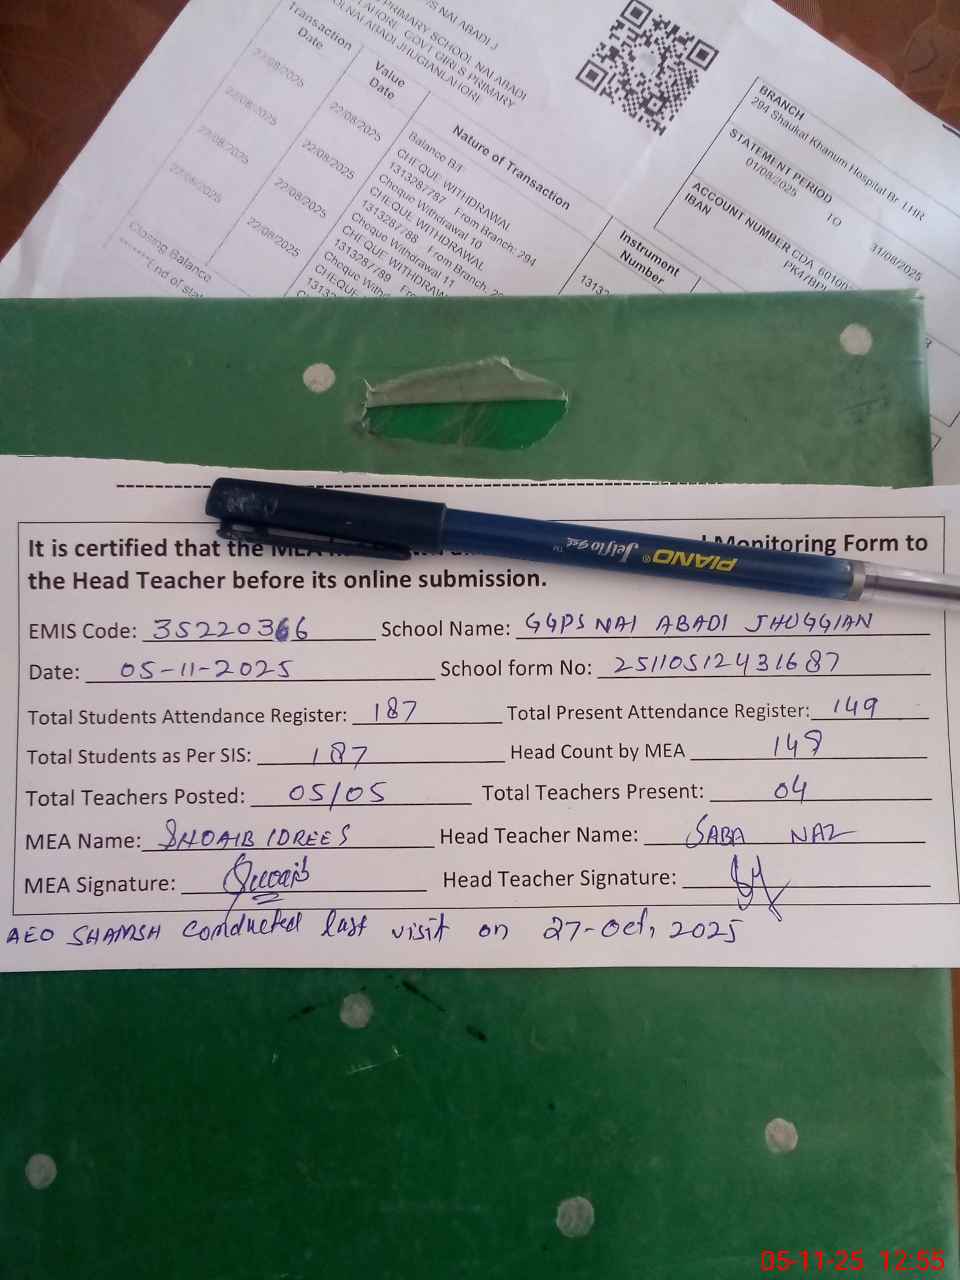 S NAI ABADI J
PRIMARY SCHOOL NAI ABADI
LAHORE, GOVT GIRLS PRIMARY
NAI ABADI JHUGIANLAHORE
BRANCH
294 Shaukat Khanum Hospital Br. LHR
STATEMENT PERIOD
01/08/2025 TO 31/08/2025
ACCOUNT NUMBER CDA
IBAN
Transaction Date Value Date Nature of Transaction Instrument Number
Balance B/F
22/08/2025 22/08/2025 CHEQUE WITHDRAWAL
1313287787 From Branch: 294
Cheque Withdrawal 10
22/08/2025 22/08/2025 CHEQUE WITHDRAWAL
1313287788 From Branch: 29
Cheque Withdrawal 11
22/08/2025 22/08/2025
1313287789
22/08/2025 22/08/2025
Closing Balance
It is certified that the Monitoring Form to
the Head Teacher before its online submission.
PIANO® Jelflo gel ™
EMIS Code: 35220366 School Name: GGPS NAI ABADI JHUGGIAN
Date: 05-11-2025 School form No: 25110512431687
Total Students Attendance Register: 187 Total Present Attendance Register: 149
Total Students as Per SIS: 187 Head Count by MEA 149
Total Teachers Posted: 05/05 Total Teachers Present: 04
MEA Name: SHOAIB IDREES Head Teacher Name: SABA NAZ
MEA Signature: Head Teacher Signature:
AEO SHAMSH conducted last visit on 27-Oct, 2025
05-11-25 12:55